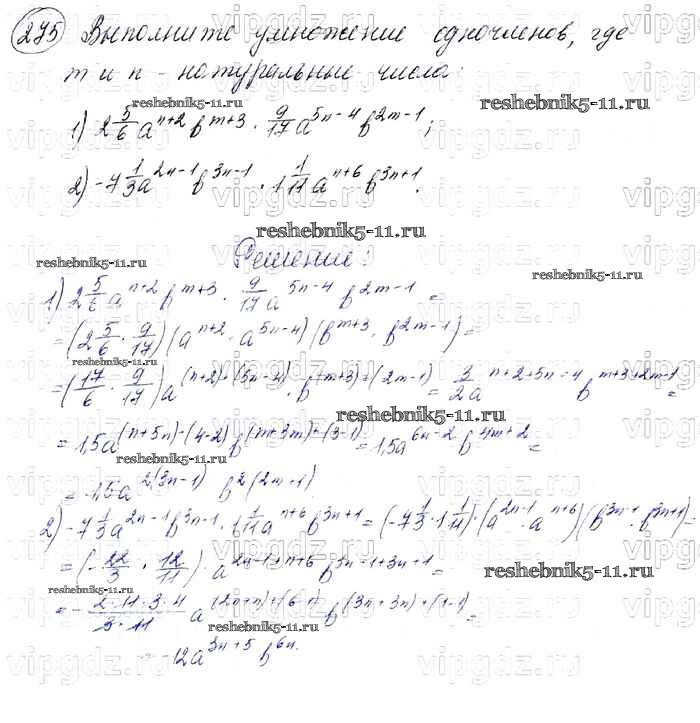 275 Выполните умножение одночленов, где
m и n - натуральные числа:
reshebnik5-11.ru reshebnik5-11.ru
1) 2 5/6 a^(n+2) b^(m+3) · 9/17 a^(5n-4) b^(2m-1);
2) -7 1/3 a^(2n-1) b^(3n-1) · 1 1/11 a^(n+6) b^(3n+1).
reshebnik5-11.ru
Решение:
reshebnik5-11.ru reshebnik5-11.ru
1) 2 5/6 a^(n+2) b^(m+3) · 9/17 a^(5n-4) b^(2m-1) =
= (2 5/6 · 9/17) (a^(n+2) · a^(5n-4)) (b^(m+3) · b^(2m-1)) =
reshebnik5-11.ru
= (17/6 · 9/17) a^((n+2)+(5n-4)) · b^((m+3)+(2m-1)) = 3/2 a^(n+2+5n-4) b^(m+3+2m-1) =
reshebnik5-11.ru
= 1,5a^((n+5n)-(4-2)) b^((m+3m)+(3-1)) = 1,5a^(6n-2) b^(4m+2) =
reshebnik5-11.ru
= 1,5a^(2(3n-1)) b^(2(2m+1))
2) -7 1/3 a^(2n-1) b^(3n-1) · 1 1/11 a^(n+6) b^(3n+1) = (-7 1/3 · 1 1/11) · (a^(2n-1) · a^(n+6)) (b^(3n-1) · b^(3n+1)) =
reshebnik5-11.ru
= (-22/3 · 12/11) · a^(2n-1+n+6) b^(3n-1+3n+1) =
reshebnik5-11.ru
= - 2·11·3·4/3·11 a^((2n+n)+(6-1)) b^((3n+3n)+(1-1)) =
reshebnik5-11.ru
= -12a^(3n+5) b^(6n).
vipgdz.ru